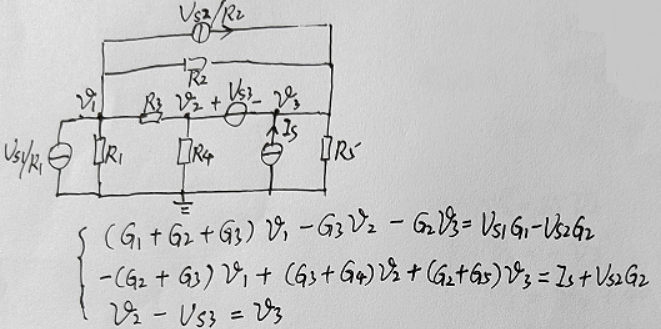 Us2/R2
R2
v1 R3 v2 + Us3 - v3
Is
Us1/R1 R1 R4 R5
(G1 + G2 + G3) v1 - G3 v2 - G2 v3 = Us1 G1 - Us2 G2
-(G2 + G3) v1 + (G3 + G4) v2 + (G2 + G5) v3 = Is + Us2 G2
v2 - Us3 = v3